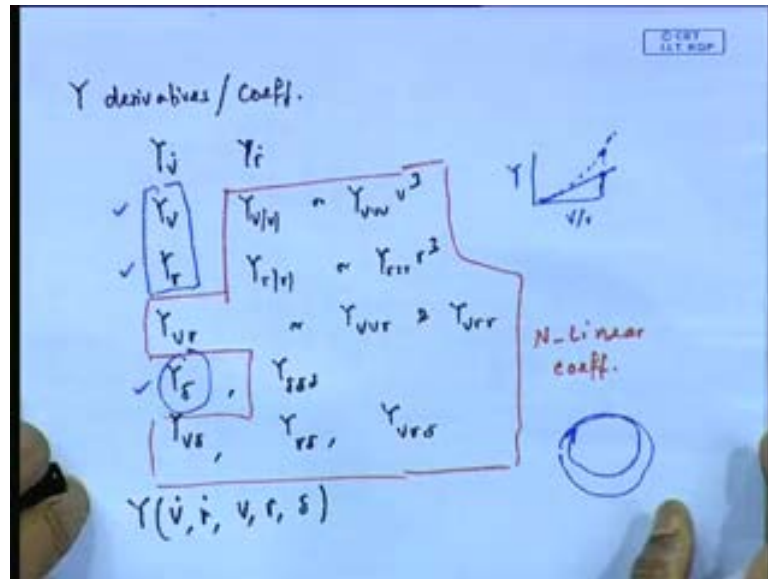 © CET
I.I.T. KGP
Y derivatives / Coeff.
Y_v̇ Y_ṙ
Y_v Y_v|v| ~ Y_vvv v³
Y_r Y_r|r| ~ Y_rrr r³
Y_vr ~ Y_vvr & Y_vrr
Y_δ , Y_δδδ
Y_vδ , Y_rδ , Y_vrδ
Y(v̇, ṙ, v, r, δ)
Y
v/r
N-Linear
coeff.